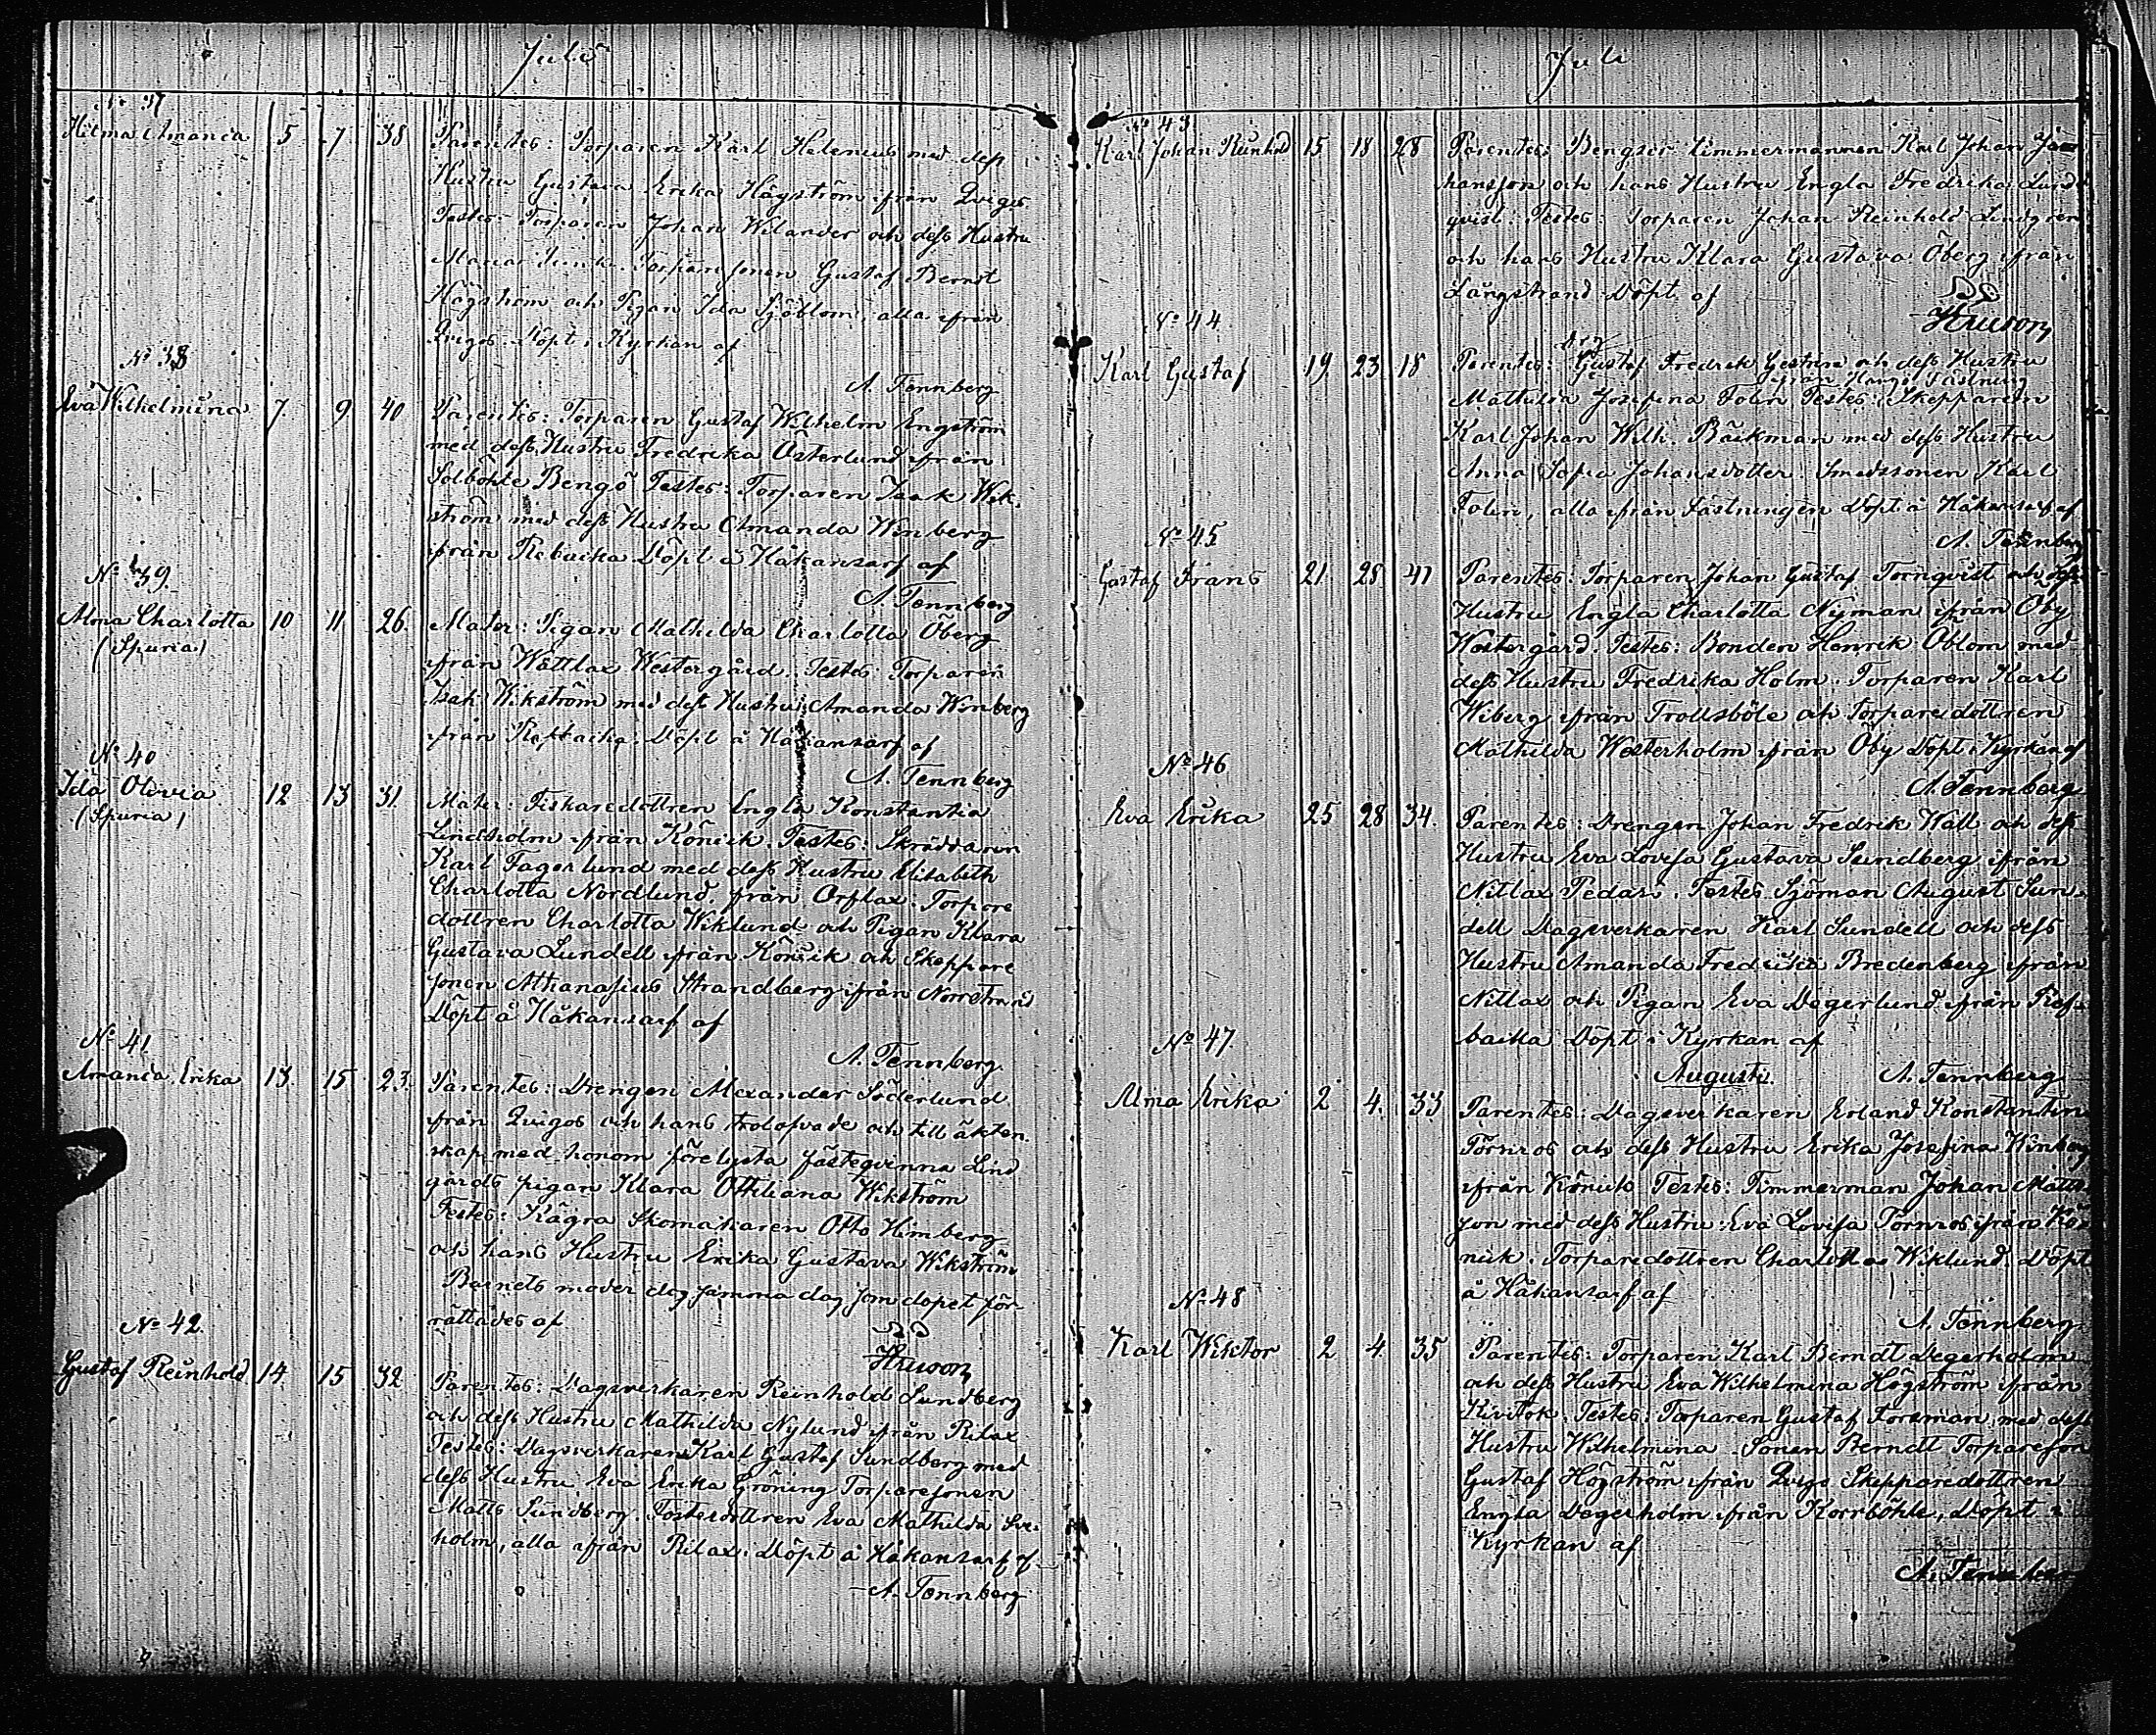 Juli
No 37
Hilma Amanda 5 7 38 Parentes: Torparen Karl Helenius med dess
Hustru Gustava Erika Högström ifrån Qvigos
Testes: Torparen Johan Wilander och dess Hustru
Maria Torparesonen Gustaf Berndt
Högström och Pigan Ida Sjöblom, alla ifrån
Qvigos. Döpt i Kyrkan af
A. Tennberg
No 38
Eva Wilhelmina 7. 9 40 Parentes: Torparen Gustaf Wilhelm Engström
med dess Hustru Fredrika Österlund ifrån
Solböhle Bengö Testes: Torparen Isak Wik-
ström med dess Hustru Amanda Winberg
från Rebacka Döpt å Håkansarf af
A. Tennberg
No 39.
Alma Charlotta 10 11 26. Mater: Pigan Mathilda Charlotta Öberg
(Spuria)
ifrån Wättlax Westergård. Testes: Torparen
Isak Wikström med dess Hustru Amanda Winberg
från Döpt å Håkansarf af
A. Tennberg
No 40
Ida Olivia 12 13 31 Mater: Fiskaredottren Engla Konstantia
(Spuria)
Lindholm ifrån Könick. Testes: Skräddaren
Karl Fagerlund med dess Hustru Elisabeth
Charlotta Nordlund, från Orslax. Torpare
dottren Charlotta Wiklund och Pigan Klara
Gustava Lundell ifrån Könick och Skeppare
sonen Athanasius Strandberg ifrån Norrstrand
Döpt å Håkansarf af
A. Tennberg.
No 41.
Amanda Erika 13. 15 23. Parentes: Drengen Alexander Söderlund
ifrån Qvigos och hans trolofvade och till äkten-
skap med honom förelysta fästeqvinna Lind
gårds pigan Klara Ottiliana Wikström
Testes: Kägra Skomakaren Otto Himberg
och hans Hustru Erika Gustava Wikström
Barnets moder dog samma dag som dopet för-
rättades af
No 42.
Gustaf Reinhold 14 15 32 Parentes: Dagsverkaren Reinhold Sundberg
och dess Hustru Mathilda Nylund ifrån Rilax
Testes: Dagsverkaren Karl Gustaf Sundberg med
dess Hustru Eva Erika Gröning Torparesonen
Matts Sundberg. Fosterdottren Eva Mathilda
holm, alla ifrån Rilax. Döpt å Håkansarf af
A. Tennberg
Juli
No 43
Karl Johan Reinhold 15 18 28 Parentes: Bengsår timmermannen Karl Johan Jo-
hansson och hans Hustru Engla Fredrika Lind-
qvist. Testes: Torparen Johan Reinhold Lindgren
och hans Hustru Klara Gustava Öberg ifrån
Långstrand Döpt af
No 44
Karl Gustaf 19 23 18 Parentes: Gustaf Fredrik och dess Hustru
ifrån Hangö Fästning
Mathilda Josefina Folin Testes: Skepparen
Karl Johan Wilh. Bäckman med dess Hustru
Anna Sofia Johansdotter. Smedssonen Karl
Folin, alla ifrån Fästningen Döpt å Håkansarf af
A. Tennberg
No 45
Gustaf Frans 21 25 41 Parentes: Torparen Johan Gustaf Tornqvist och dess
Hustru Engla Charlotta Nyman ifrån Öby
Westergård. Testes: Bonden Henrik Öblom med
dess Hustru Fredrika Holm. Torparen Karl
Wiberg ifrån Trollsböle och Torparedottren
Mathilda Westerholm ifrån Öby Döpt i Kyrkan af
A. Tennberg
No 46
Eva Erika 25 28 34. Parentes: Drengen Johan Fredrik Wall och dess
Hustru Eva Lovisa Gustava Sundberg ifrån
Nitlax Pedars. Testes Sjöman August Sun-
dell Dagsverkaren Karl Sundell och dess
Hustru Amanda Fredrika Bredenberg ifrån
Nitlax och Pigan Eva Degerlund ifrån Ref-
backa Döpt i Kyrkan af
A. Tennberg
Augusti.
No 47.
Alma Erika 2 4. 33 Parentes: Dagsverkaren Erland Konstantin
Törnros och dess Hustru Erika Josefina Winberg
ifrån Könick Testes: Timmerman Johan Matts-
son med dess Hustru Eva Lovisa Törnros ifrån Kö-
nick. Torparedottren Charlotta Wiklund. Döpt
å Håkansarf af
A. Tennberg.
No 48
Karl Wiktor 2 4 35 Parentes: Torparen Karl Berndt Degerholm
och dess Hustru Eva Wilhelmina Högström ifrån
Kivitok. Testes: Torparen Gustaf Forsman med dess
Hustru Wilhelmina. Sonen Berndt Torpareson
Gustaf Högström ifrån Qvigo Skepparedottren
Engla Degerholm ifrån Korrböhle, Döpt i
Kyrkan af
A. Tennberg